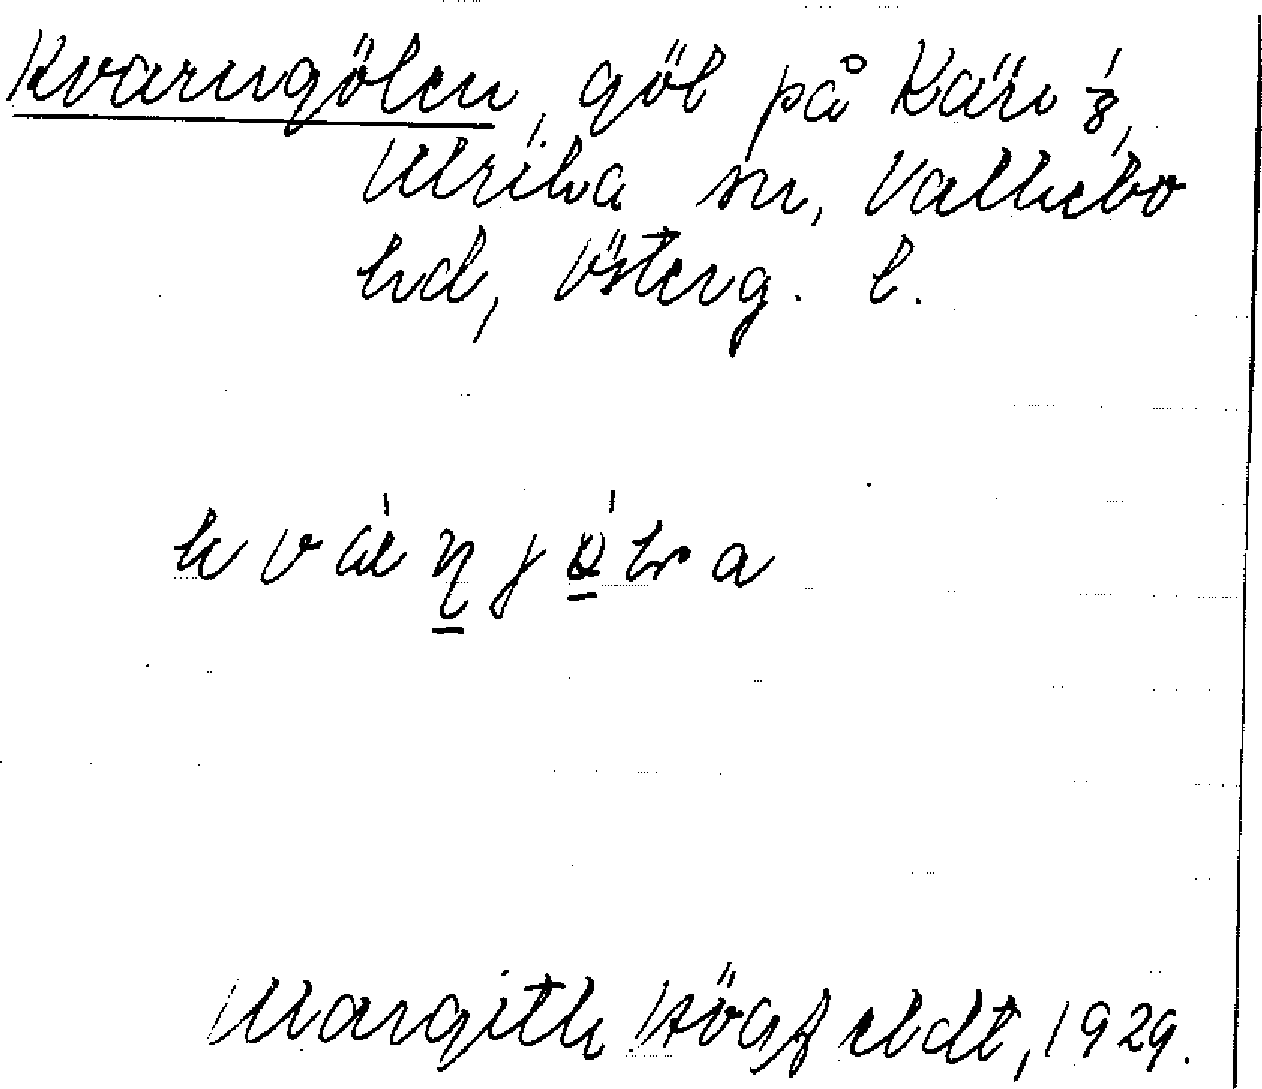 Kvarngölen, göl på Kärr 1/8,
Ulrika sn, Vallebo
hd, Österg. l.
Margith Högfeldt, 1929.